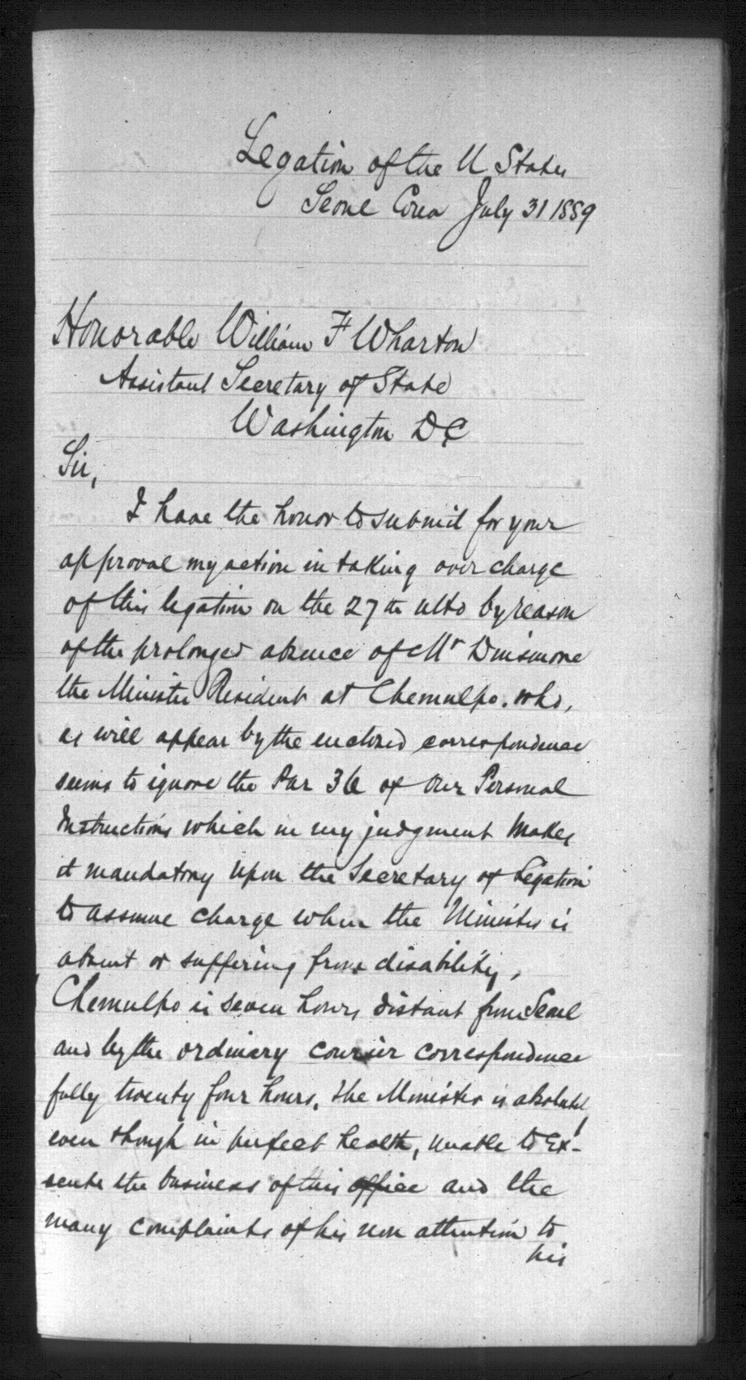 Legation of the U States
Seoul Corea July 31 1889
Honorable William F Wharton
Assistant Secretary of State
Washington DC
Sir,
I have the honor to submit for your
approval my action in taking over charge
of this legation on the 27th ulto by reason
of the prolonged absence of Mr Dinsmore
the Minister Resident at Chemulpo. who,
as will appear by the enclosed correspondence
seems to ignore the Par 36 of our Personal
Instructions which in my judgment makes
it mandatory upon the Secretary of Legation
to assume charge when the Minister is
absent or suffering from disability,
Chemulpo is seven hours distant from Seoul
and by the ordinary courier correspondence
fully twenty four hours. The Minister is absolutely
even though in perfect health, unable to ex-
ecute the business of this office and the
many complaints of his non attention to
his